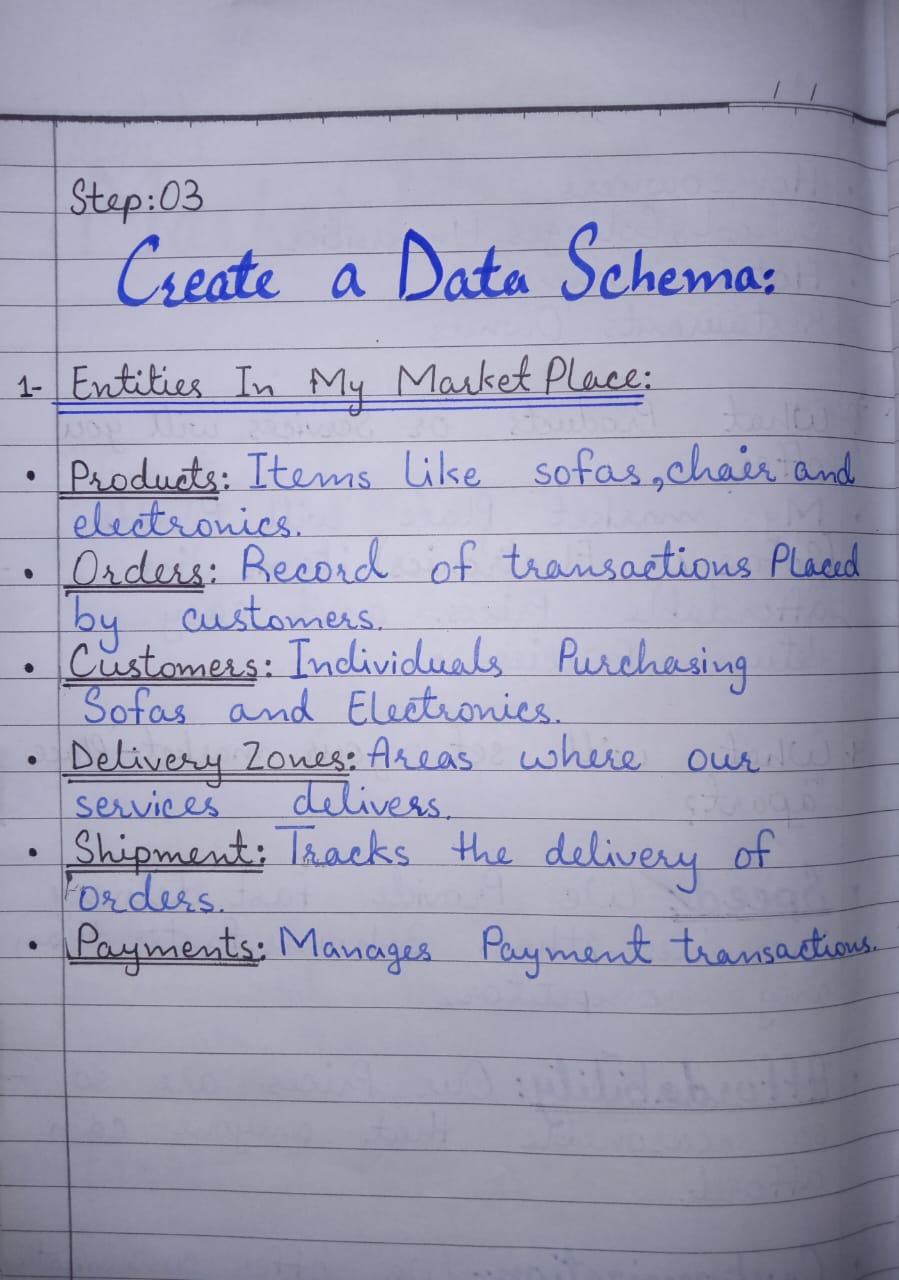 Step:03
Create a Data Schema:
1- Entities In My Market Place:
• Products: Items like sofas, chair and
electronics.
• Orders: Record of transactions Placed
by customers.
• Customers: Individuals Purchasing
Sofas and Electronics.
• Delivery Zones: Areas where our
services delivers.
• Shipment: Tracks the delivery of
orders.
• Payments: Manages Payment transactions.